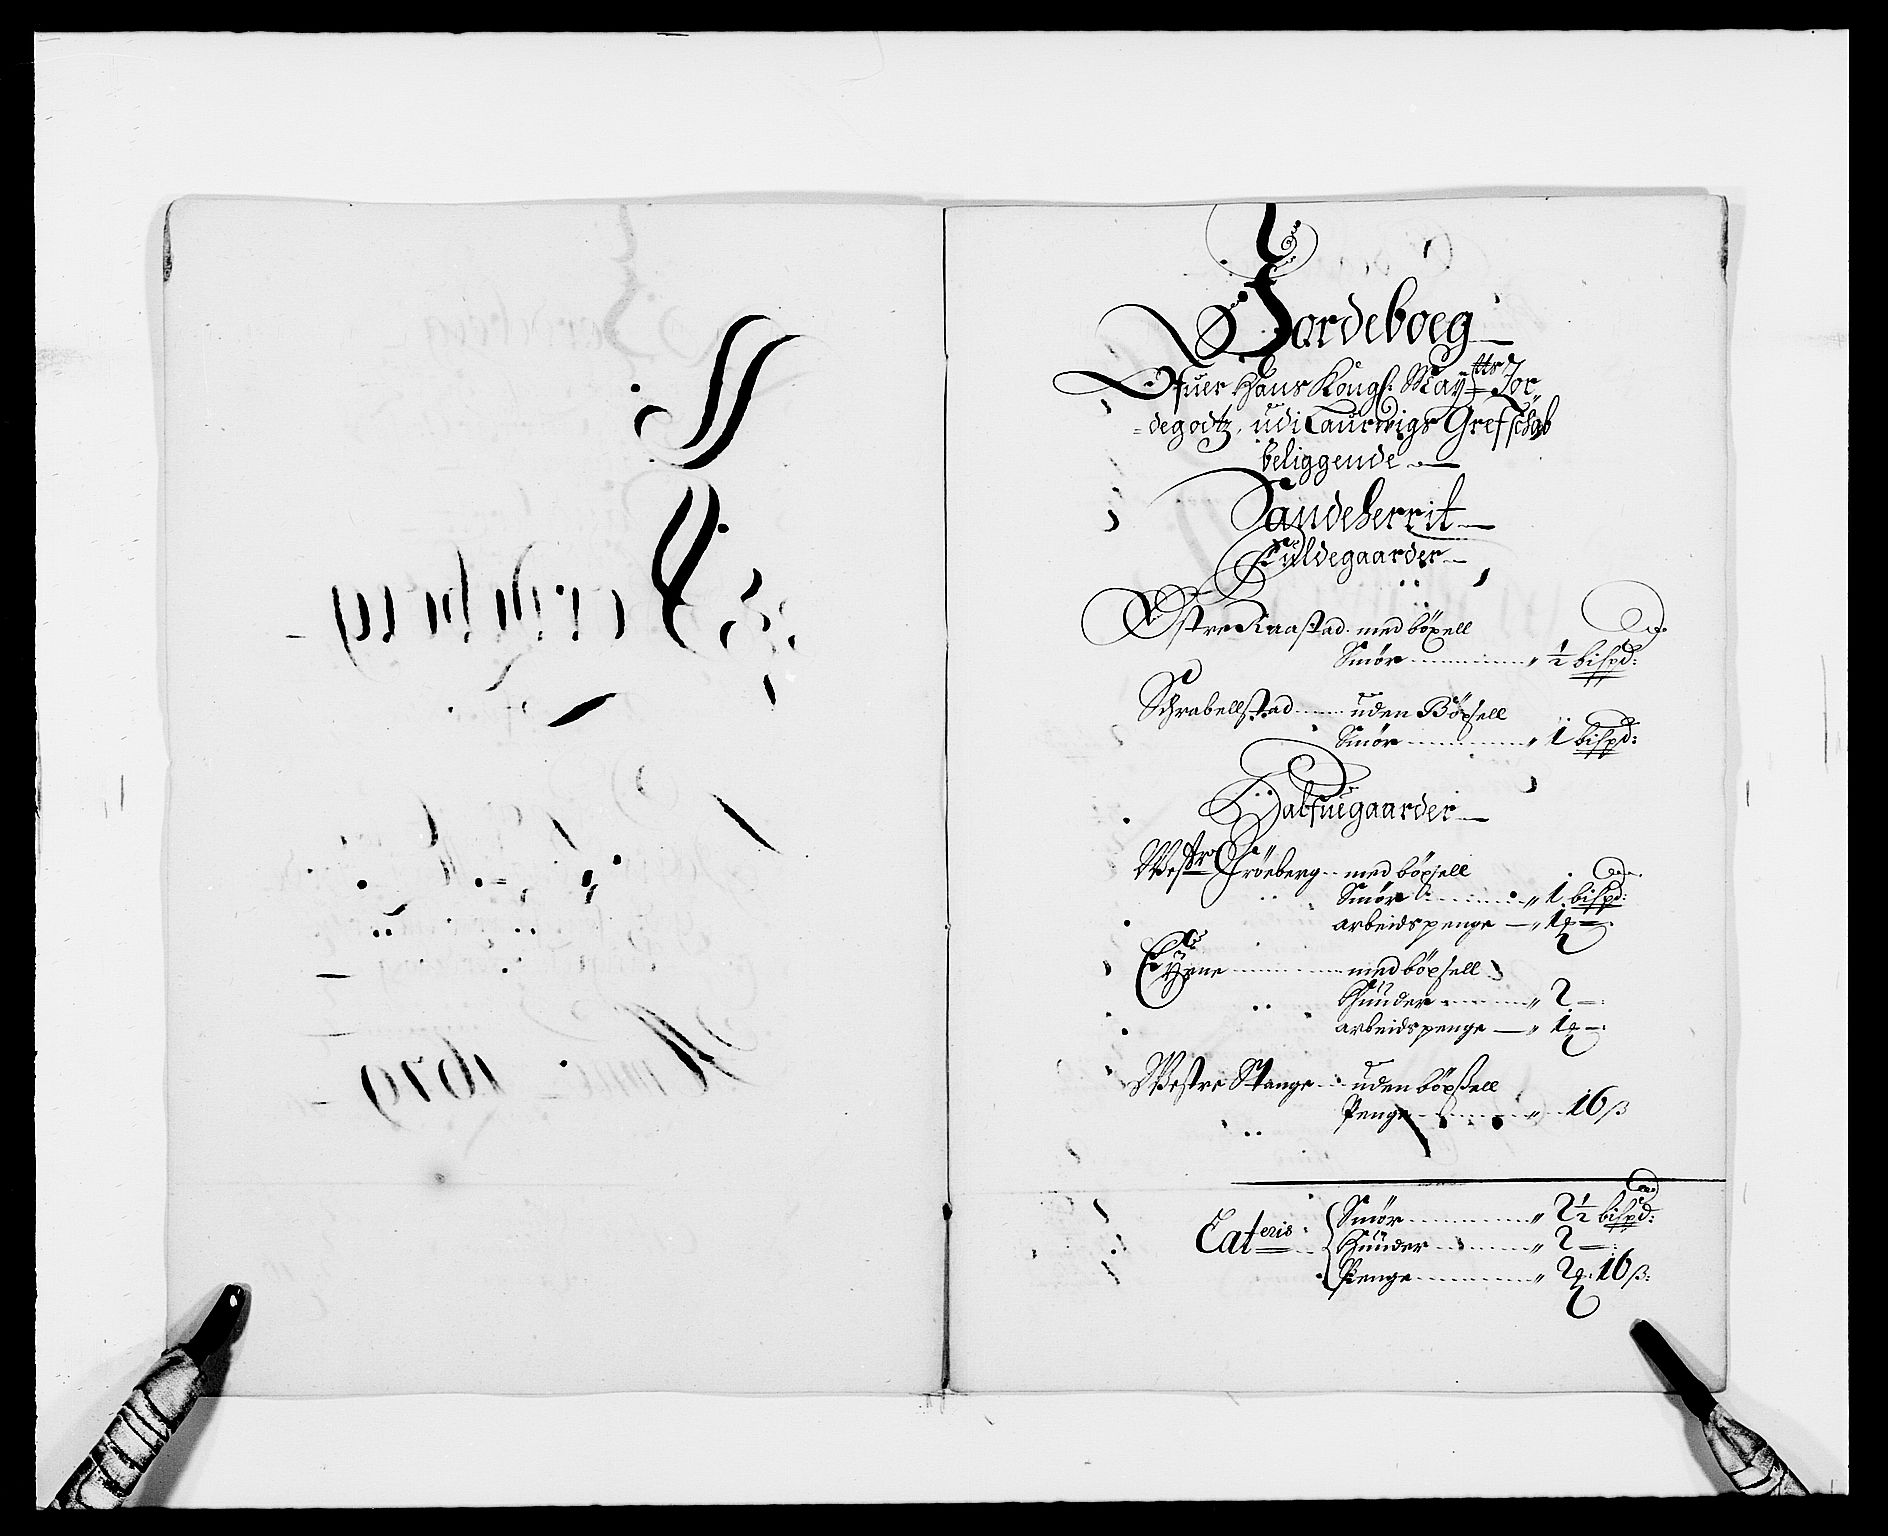 Jordeboeg
Ofuer Hans Kongl: May:tts Jor„
=degodtz, udi Laurvigs Grefschab
beliggende
Sandeherrit
Fuldegaarder
Østre Raastad med böxell
Smör „ ½ bispd:
Schrabellstad uden Böxsell
Smör „ 1 bispd:
Halfuegaarder
Westre Gröeberg med böxsell
Smör „ 1 bispd:
arbeidspenge „ 1
med böxsell
Huuder „ 2
arbeidspenge „ 1
Westre Stange uden böxßell
Penge „ 16 ß
Lateris: Smör „ 2½ bispd:
Huuder „ 2
Penge „ 2 16 ß: